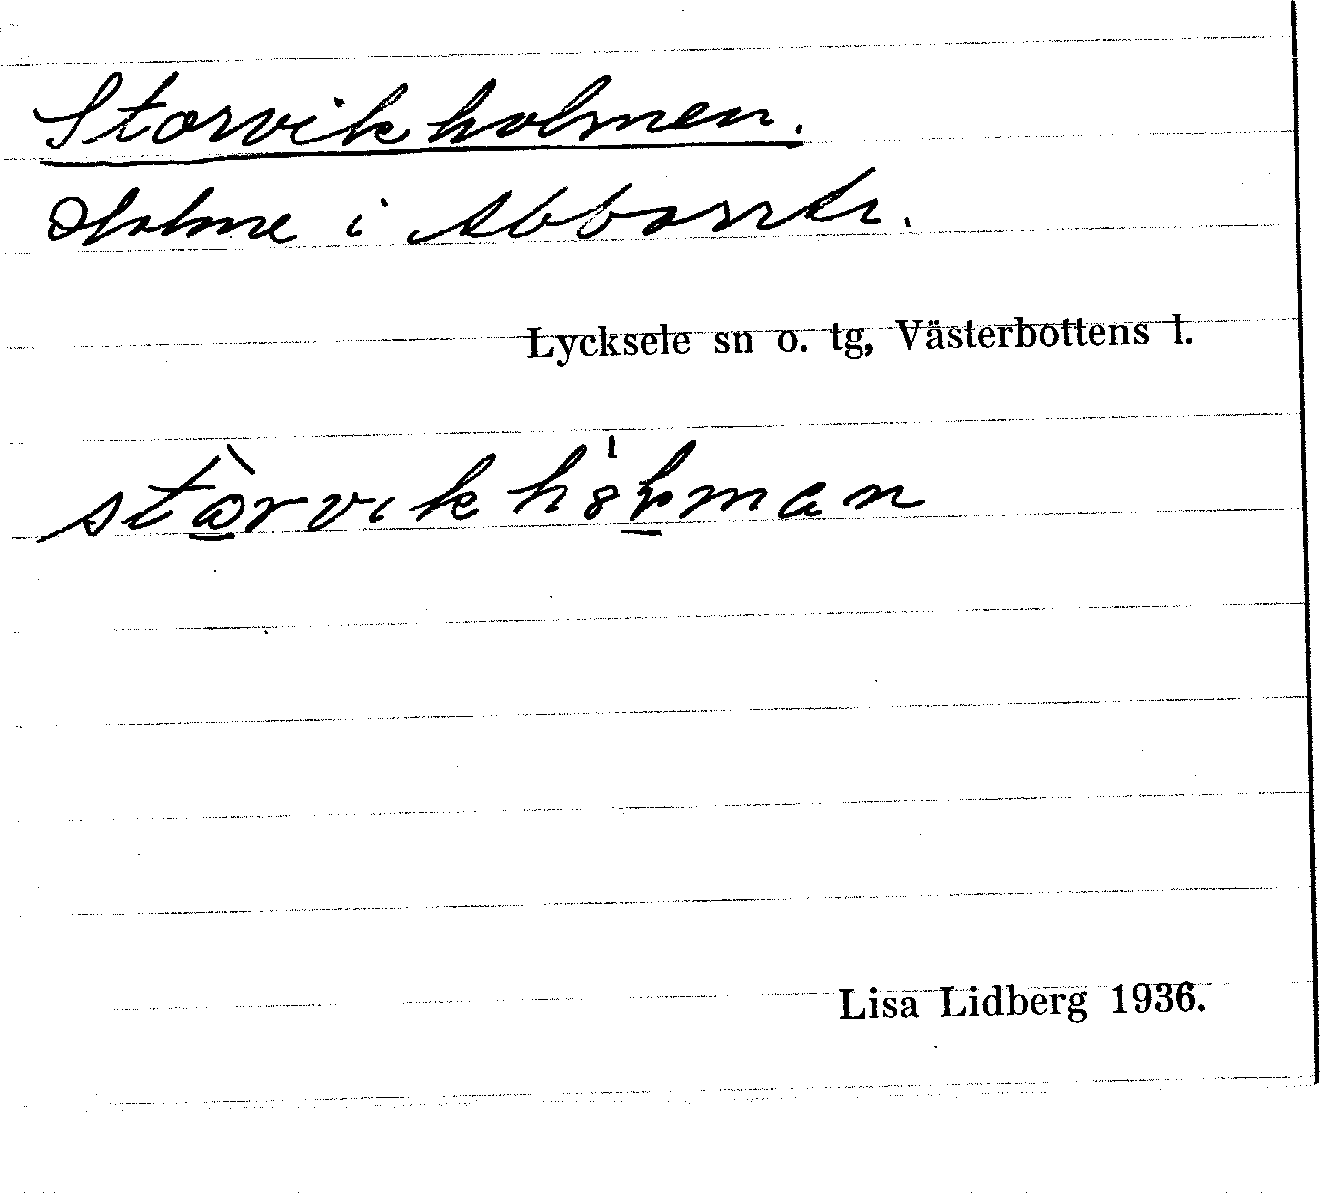 Storvikholmen.
Holme i Abborrtr.
Lycksele sn o. tg, Västerbottens l.
Lisa Lidberg 1936.